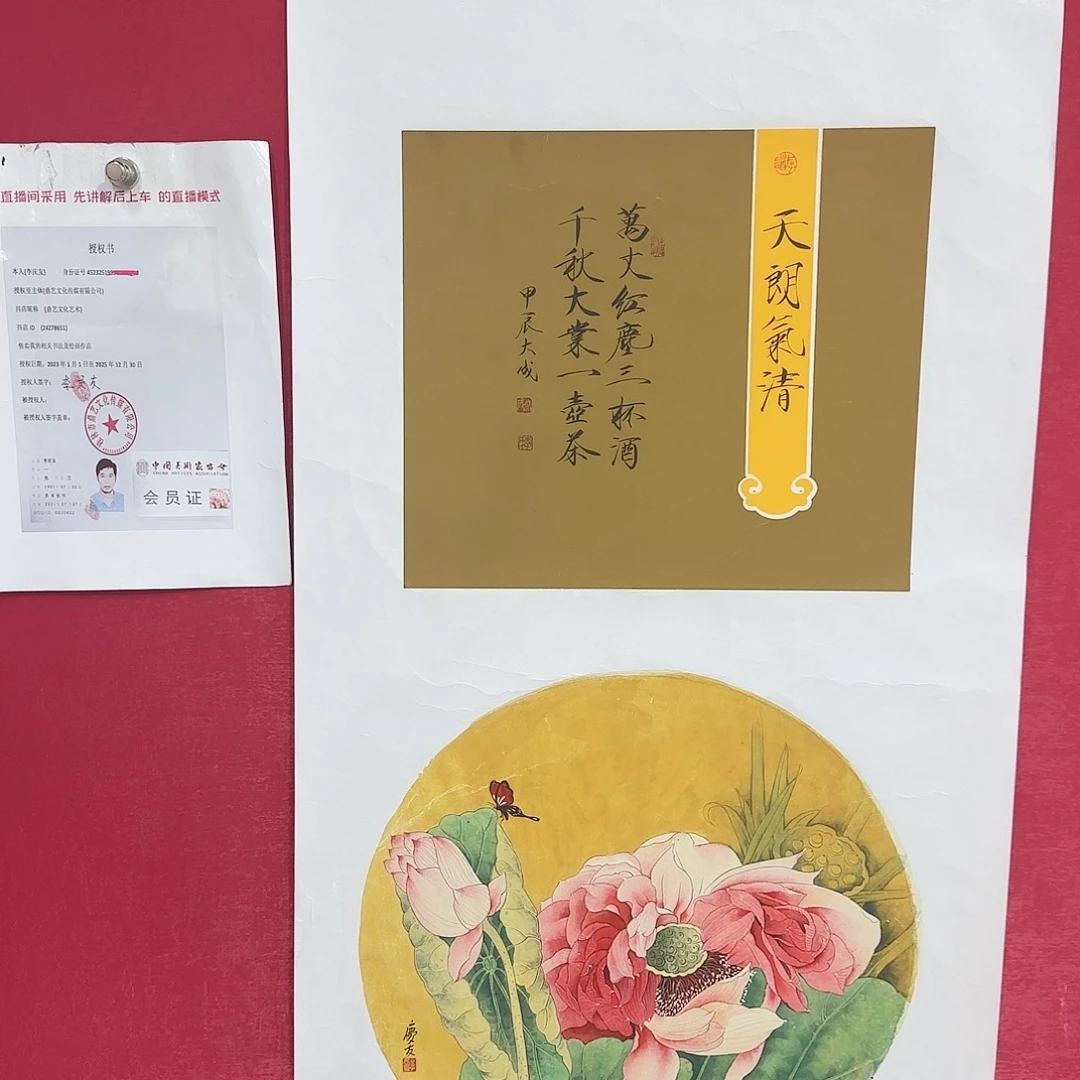 直播间采用 先讲解后上车 的直播模式
授权书
本人(李庆友) 身份证号452325198
授权至主体(鼎艺文化传媒有限公司)
抖店昵称 (鼎艺文化艺术)
抖店 ID (24278651)
售卖我的相关书法及绘画作品
授权日期: 2023 年 1 月 1 日至 2025 年 12 月 30 日
授权人签字:
被授权人:
被授权人签字盖章:
中国美术家协会
CHINA ARTISTS ASSOCIATION
会员证
天朗氣清
萬丈红塵三杯酒
千秋大業一壺茶
甲辰大成
慶友